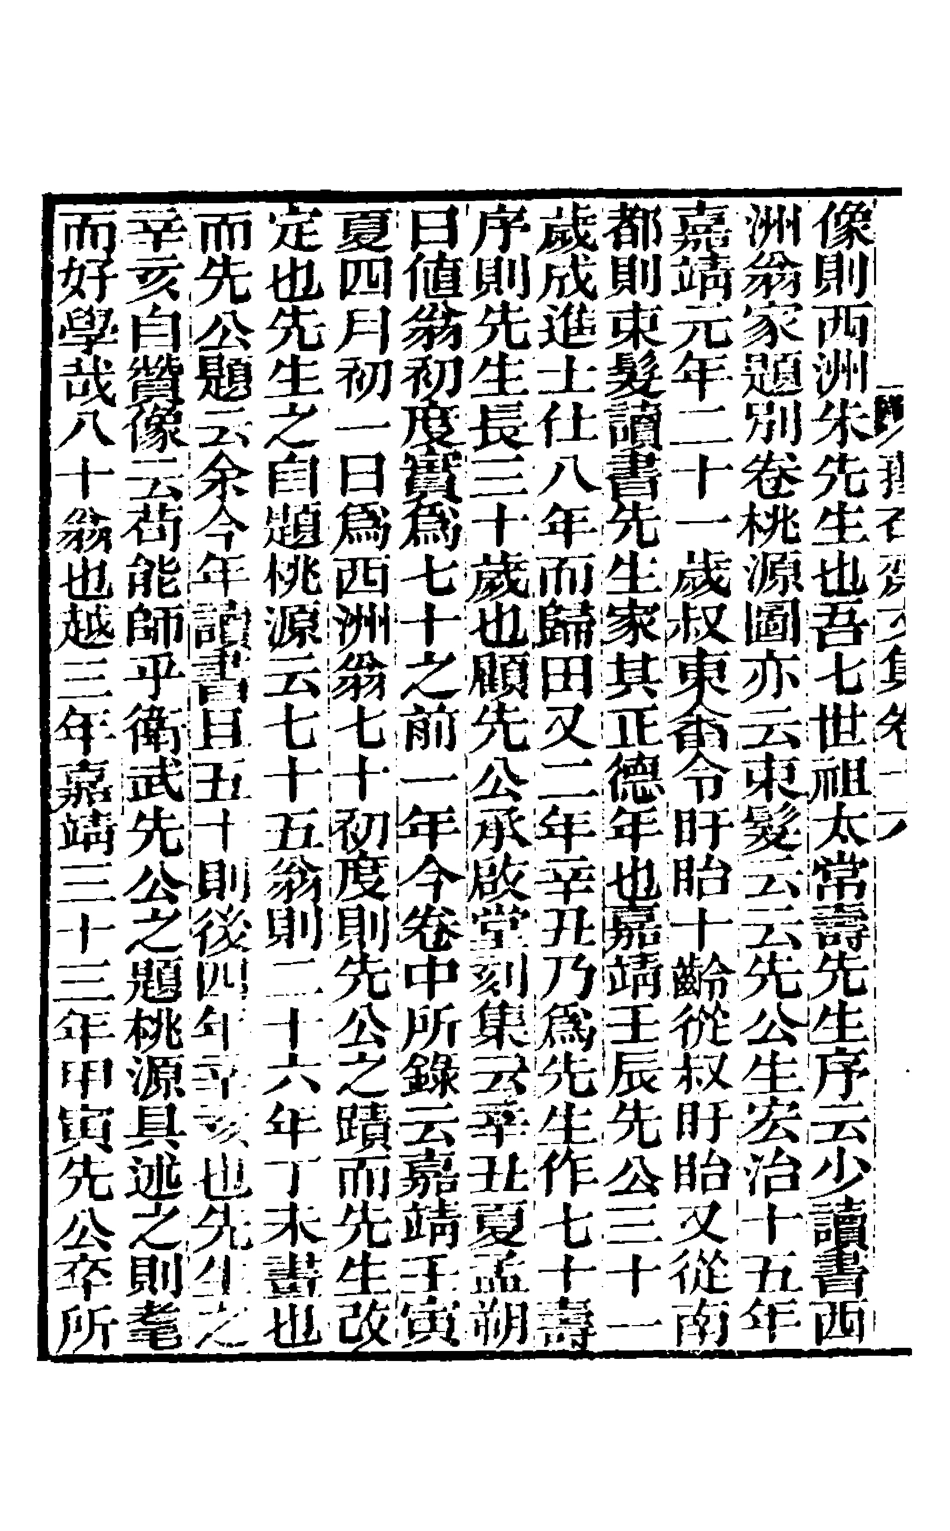 像則西洲朱先生也吾七世祖太常壽先生序云少讀書西
洲翁家題別卷桃源圖亦云東髮云云先公生宏治十五年
嘉靖元年二十一歲叔東畬令盱眙十齡從叔盱眙又從南
都則束髮讀書先生家其正德年也嘉靖壬辰先公三十一
歲成進士仕八年而歸田又二年辛丑乃爲先生作七十壽
序則先生長三十歲也顧先公承啟堂刻集云辛丑夏孟朔
日値翁初度實爲七十之前一年今卷中所錄云嘉靖壬寅
夏四月初一日爲西洲翁七十初度則先公之蹟而先生改
定也先生之自題桃源云七十五翁則二十六年丁未畫也
而先公題云余今年讀書且五十則後四年辛亥也先生之
辛亥自贊像云苟能師乎衛武先公之題桃源具述之則耄
而好學哉八十翁也越三年嘉靖三十三年甲寅先公卒所